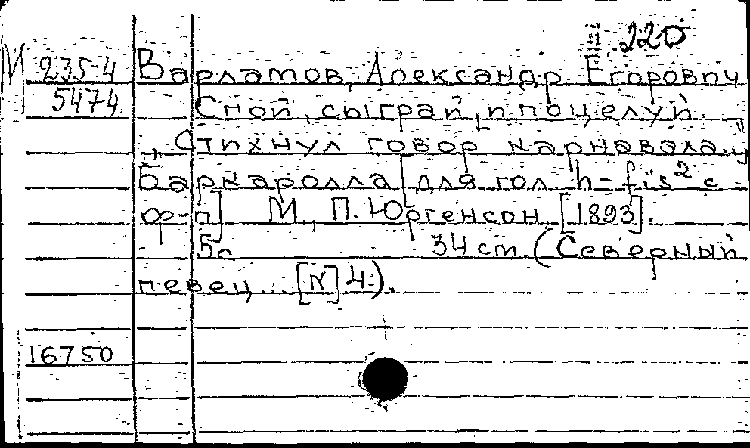 II 220
М 2354 Варламов, Александр Егорович
5474 Спой, сыграй и поцелуй.
„Стихнул говор карнавала..."
Баркаролла [для гол h-fis² с
ф-п] М., П. Юргенсон [1893].
5с 34 cm. (Северный
певец... [N] 4.).
16750